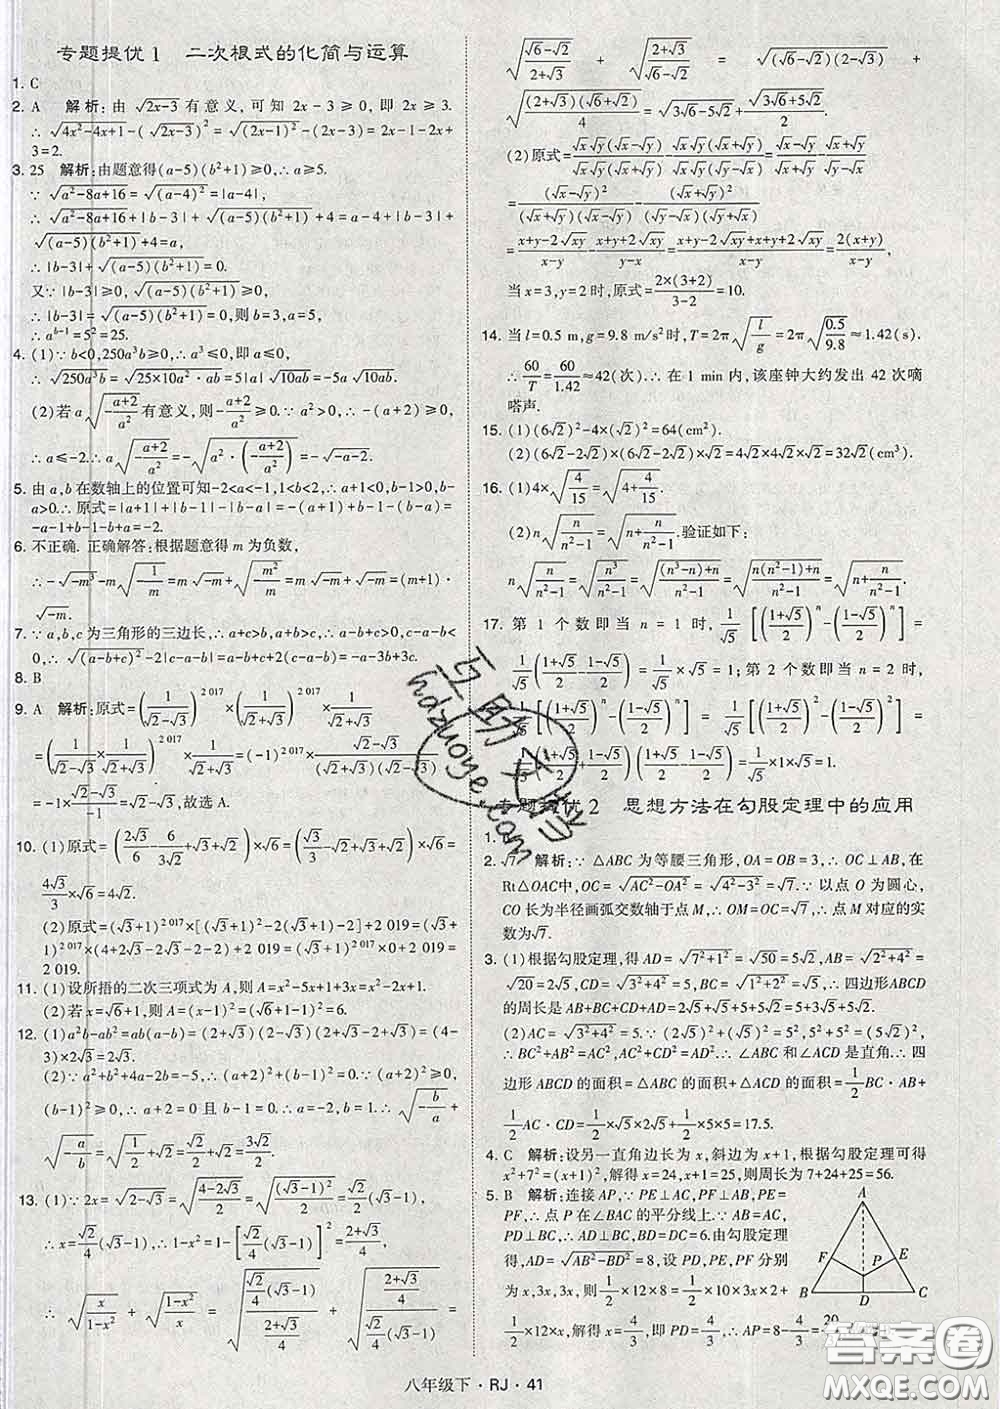 专题提优1 二次根式的化简与运算
1. C
2. A 解析:由√(2x-3)有意义,可知2x-3≥0,即2x≥3.
∴√(4x²-4x+1)-(√(2x-3))²=√((2x-1)²)-(2x-3)=2x-1-2x+
3=2.
3. 25 解析:由题意得(a-5)(b²+1)≥0,∴a≥5.
∵√(a²-8a+16)=√((a-4)²)=|a-4|,
∴√(a²-8a+16)+|b-3|+√((a-5)(b²+1))+4=a-4+|b-3|+
√((a-5)(b²+1))+4=a,
∴|b-3|+√((a-5)(b²+1))=0.
又∵|b-3|≥0,√((a-5)(b²+1))≥0,
∴|b-3|=√((a-5)(b²+1))=0,则b=3,a=5,
∴a^(b-1)=5²=25.
4. (1)∵b<0,250a³b≥0,∴a³≤0,即a≤0.
∴√(250a³b)=√(25×10a²·ab)=5|a|√(10ab)=-5a√(10ab).
(2)若a√(-(a+2)/a²)有意义,则-(a+2)/a²≥0.∵a²>0,∴-(a+2)≥0,
∴a≤-2.∴a√(-(a+2)/a²)=-√(a²·(-(a+2)/a²))=-√(-a-2).
5. 由a,b在数轴上的位置可知-2<a<-1,1<b<2,∴a+1<0,b-1>0,b-
a>0.∴原式=|a+1|+|b-1|-|b-a|=-(a+1)+b-1-(b-a)=
-a-1+b-1-b+a=-2.
6. 不正确. 正确解答:根据题意得m为负数,
∴-√(-m³)-m√(-1/m)=m√(-m)+√(-m²/m)=m√(-m)+√(-m)=(m+1)·
√(-m).
7. ∵a,b,c为三角形的三边长,∴a+c>b,a+b>c,∴a-b+c>0,c-a-b<
0.∴√((a-b+c)²)-2|c-a-b|=a-b+c+2(c-a-b)=-a-3b+3c.
8. B
9. A 解析:原式=(1/(√2-√3))^2 017×(1/(√2+√3))^2 017×1/(√2+√3)
=(1/(√2-√3)×1/(√2+√3))^2 017×1/(√2+√3)=(-1)^2 017×(√2-√3)/((√2+√3)(√2-√3))
=-1×(√2-√3)/(-1)=√2-√3,故选A.
10. (1)原式=(2√3/3-6/(3√2)+√2+√3... )×√6=
4√3/3×√6=4√2.
(2)原式=(√3+1)^2 017×[(√3+1)²-2(√3+1)-2]+2 019=(√3+
1)^2 017×(4+2√3-2√3-2-2)+2 019=(√3+1)^2 017×0+2 019=
2 019.
11. (1)设所捂的二次三项式为A,则A=x²-5x+1+3x=x²-2x+1.
(2)若x=√6+1,则A=(x-1)²=(√6+1-1)²=6.
12. (1)a²b-ab²=ab(a-b)=(2+√3)(2-√3)(2+√3-2+√3)=(4-
3)×2√3=2√3.
(2)∵a²+b²+4a-2b+5=0,∴(a+2)²+(b-1)²=0.∵(a+2)²≥0,
(b-1)²≥0,∴a+2=0且b-1=0.∴a=-2,b=1.∴√(-b/a)+
√(-a/b)=√(1/2)+√2=√2/2+√2=3√2/2.
13. (1)∵2x=√(2-√3)=√((4-2√3)/2)=√((√3-1)²/2)=√2/2(√3-1),
∴x=√2/4(√3-1),∴1-x²=1-[√2/4(√3-1)]²=(2+√3)/4.
∴√(x/(1-x²))+√((1-x²)/x)=√(√2/4(√3-1)/((2+√3)/4))+√(((2+√3)/4)/(√2/4(√3-1)))=
√((√6-√2)/(2+√3))+√((2+√3)/(√6-√2))=√((√6-√2)(2-√3))+
√((2+√3)(√6+√2)/4)=√(3√6-5√2)+√(3√6+5√2)/2.
(2)原式=√x√y(√x-√y)/(√x√y(√x+√y))+√x√y(√x+√y)/(√x√y(√x-√y))=(√x-√y)/(√x+√y)+(√x+√y)/(√x-√y)
=(√x-√y)²/((√x+√y)(√x-√y))+(√x+√y)²/((√x-√y)(√x+√y))
=(x+y-2√xy)/(x-y)+(x+y+2√xy)/(x-y)=(x+y-2√xy+x+y+2√xy)/(x-y)=2(x+y)/(x-y).
当x=3,y=2时,原式=2×(3+2)/(3-2)=10.
14. 当l=0.5 m,g=9.8 m/s²时,T=2π√(l/g)=2π√(0.5/9.8)≈1.42(s).
∴60/T=60/1.42≈42(次).∴在1 min内,该座钟大约发出42次嘀
嗒声.
15. (1)(6√2)²-4×(√2)²=64(cm²).
(2)(6√2-2√2)×(6√2-2√2)×√2=4√2×4√2×√2=32√2(cm³)
16. (1)4×√(4/15)=√(4+4/15).
(2)n√(n/(n²-1))=√(n+n/(n²-1)).验证如下:
n√(n/(n²-1))=√(n³/(n²-1))=√(((n³-n)+n)/(n²-1))=√((n(n²-1)+n)/(n²-1))=√(n+n/(n²-1)).
17. 第1个数即当n=1时,1/√5[((1+√5)/2)^n-((1-√5)/2)^n]=
1/√5((1+√5)/2-(1-√5)/2)=1/√5×√5=1;第2个数即当n=2时,
1/√5[((1+√5)/2)^n-((1-√5)/2)^n]=1/√5[((1+√5)/2)²-((1-√5)/2)²]=
1/√5((1+√5)/2+(1-√5)/2)((1+√5)/2-(1-√5)/2)=1/√5×1×√5=1.
专题提优2 思想方法在勾股定理中的应用
1.
2. √7 解析:∵△ABC为等腰三角形,OA=OB=3,∴OC⊥AB,在
Rt△OAC中,OC=√(AC²-OA²)=√(4²-3²)=√7.∵以点O为圆心,
CO长为半径画弧交数轴于点M,∴OM=OC=√7,∴点M对应的实
数为√7.
3. (1)根据勾股定理,得AD=√(7²+1²)=√50=5√2,AB=√(2²+4²)
=√20=2√5,CD=√(3²+4²)=5,BC=√(1²+2²)=√5,∴四边形ABCD
的周长是AB+BC+CD+AD=2√5+√5+5+5√2=5+3√5+5√2.
(2)AC=√(3²+4²)=5.∵(2√5)²+(√5)²=5²,5²+5²=(5√2)²,
∴BC²+AB²=AC²,AC²+CD²=AD²,∴∠ABC和∠ACD是直角.∴四
边形ABCD的面积=△ABC的面积+△ACD的面积=1/2AB·BC+
1/2AC·CD=1/2×√5×2√5+1/2×5×5=17.5.
4. C 解析:设另一直角边长为x,斜边为x+1,根据勾股定理可得
x²+7²=(x+1)²,解得x=24,x+1=25,则周长为7+24+25=56.
5. B 解析:连接AP,∵PE⊥AC,PF⊥AB,PE=
PF,∴点P在∠BAC的平分线上.∵AB=AC=
10,∴AD⊥BC,BD=DC=6.由勾股定理
得,AD=√(AB²-BD²)=8,设PD,PE,PF分别
为x,3x,3x,则1/2×12×8=1/2×10×3x+1/2×10×3x+
1/2×12×x,解得x=4/3,即PD=4/3,∴AP=8-4/3=20/3
A
F
P
E
B
D
C
互助文档
hdzuoye.com
答案圈
MXQE.COM
八年级下·RJ·41